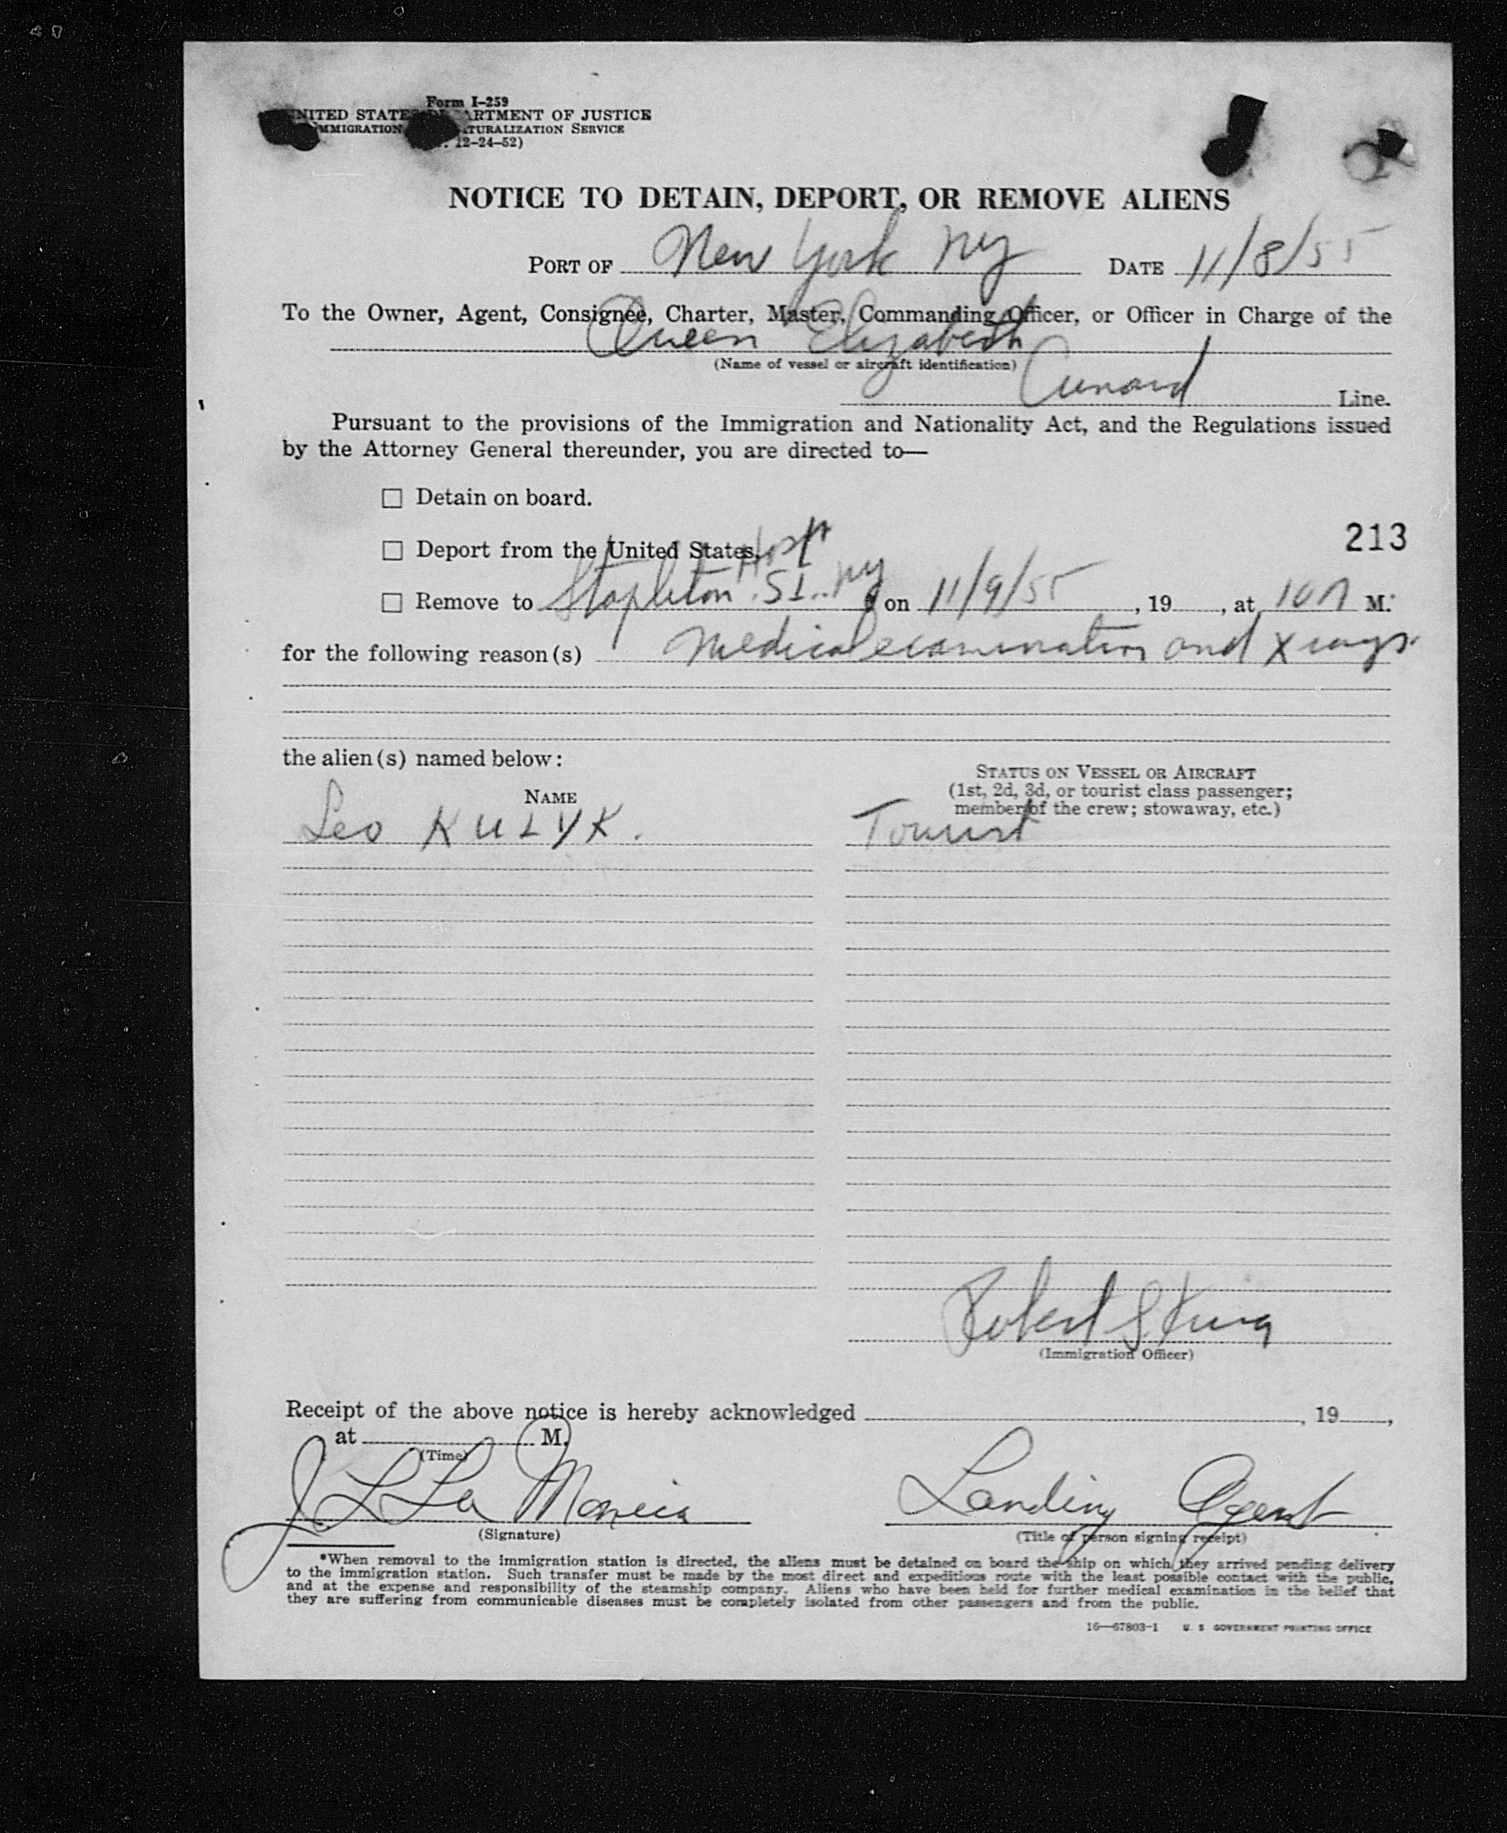 Form I-259
UNITED STATES DEPARTMENT OF JUSTICE
IMMIGRATION NATURALIZATION SERVICE
12-24-52)
NOTICE TO DETAIN, DEPORT, OR REMOVE ALIENS
PORT OF New York NY DATE 11/8/55
To the Owner, Agent, Consignee, Charter, Master, Commanding Officer, or Officer in Charge of the
Queen Elizabeth
(Name of vessel or aircraft identification)
Cunard Line.
Pursuant to the provisions of the Immigration and Nationality Act, and the Regulations issued
by the Attorney General thereunder, you are directed to—
☐ Detain on board.
213
☐ Deport from the United States.
Hospt
☐ Remove to Stapleton S.I. NY on 11/9/55, 19, at 10 A M.
for the following reason(s) Medical examination and X rays.
the alien(s) named below:
NAME
STATUS ON VESSEL OR AIRCRAFT
(1st, 2d, 3d, or tourist class passenger;
member of the crew; stowaway, etc.)
Leo KULYK. Tourist
Robert S. King
(Immigration Officer)
Receipt of the above notice is hereby acknowledged , 19,
at M.
(Time)
J L La Landing Agent
(Signature) (Title of person signing receipt)
*When removal to the immigration station is directed, the aliens must be detained on board the ship on which they arrived pending delivery
to the immigration station. Such transfer must be made by the most direct and expeditious route with the least possible contact with the public,
and at the expense and responsibility of the steamship company. Aliens who have been held for further medical examination in the belief that
they are suffering from communicable diseases must be completely isolated from other passengers and from the public.
16—67803-1 U. S. GOVERNMENT PRINTING OFFICE